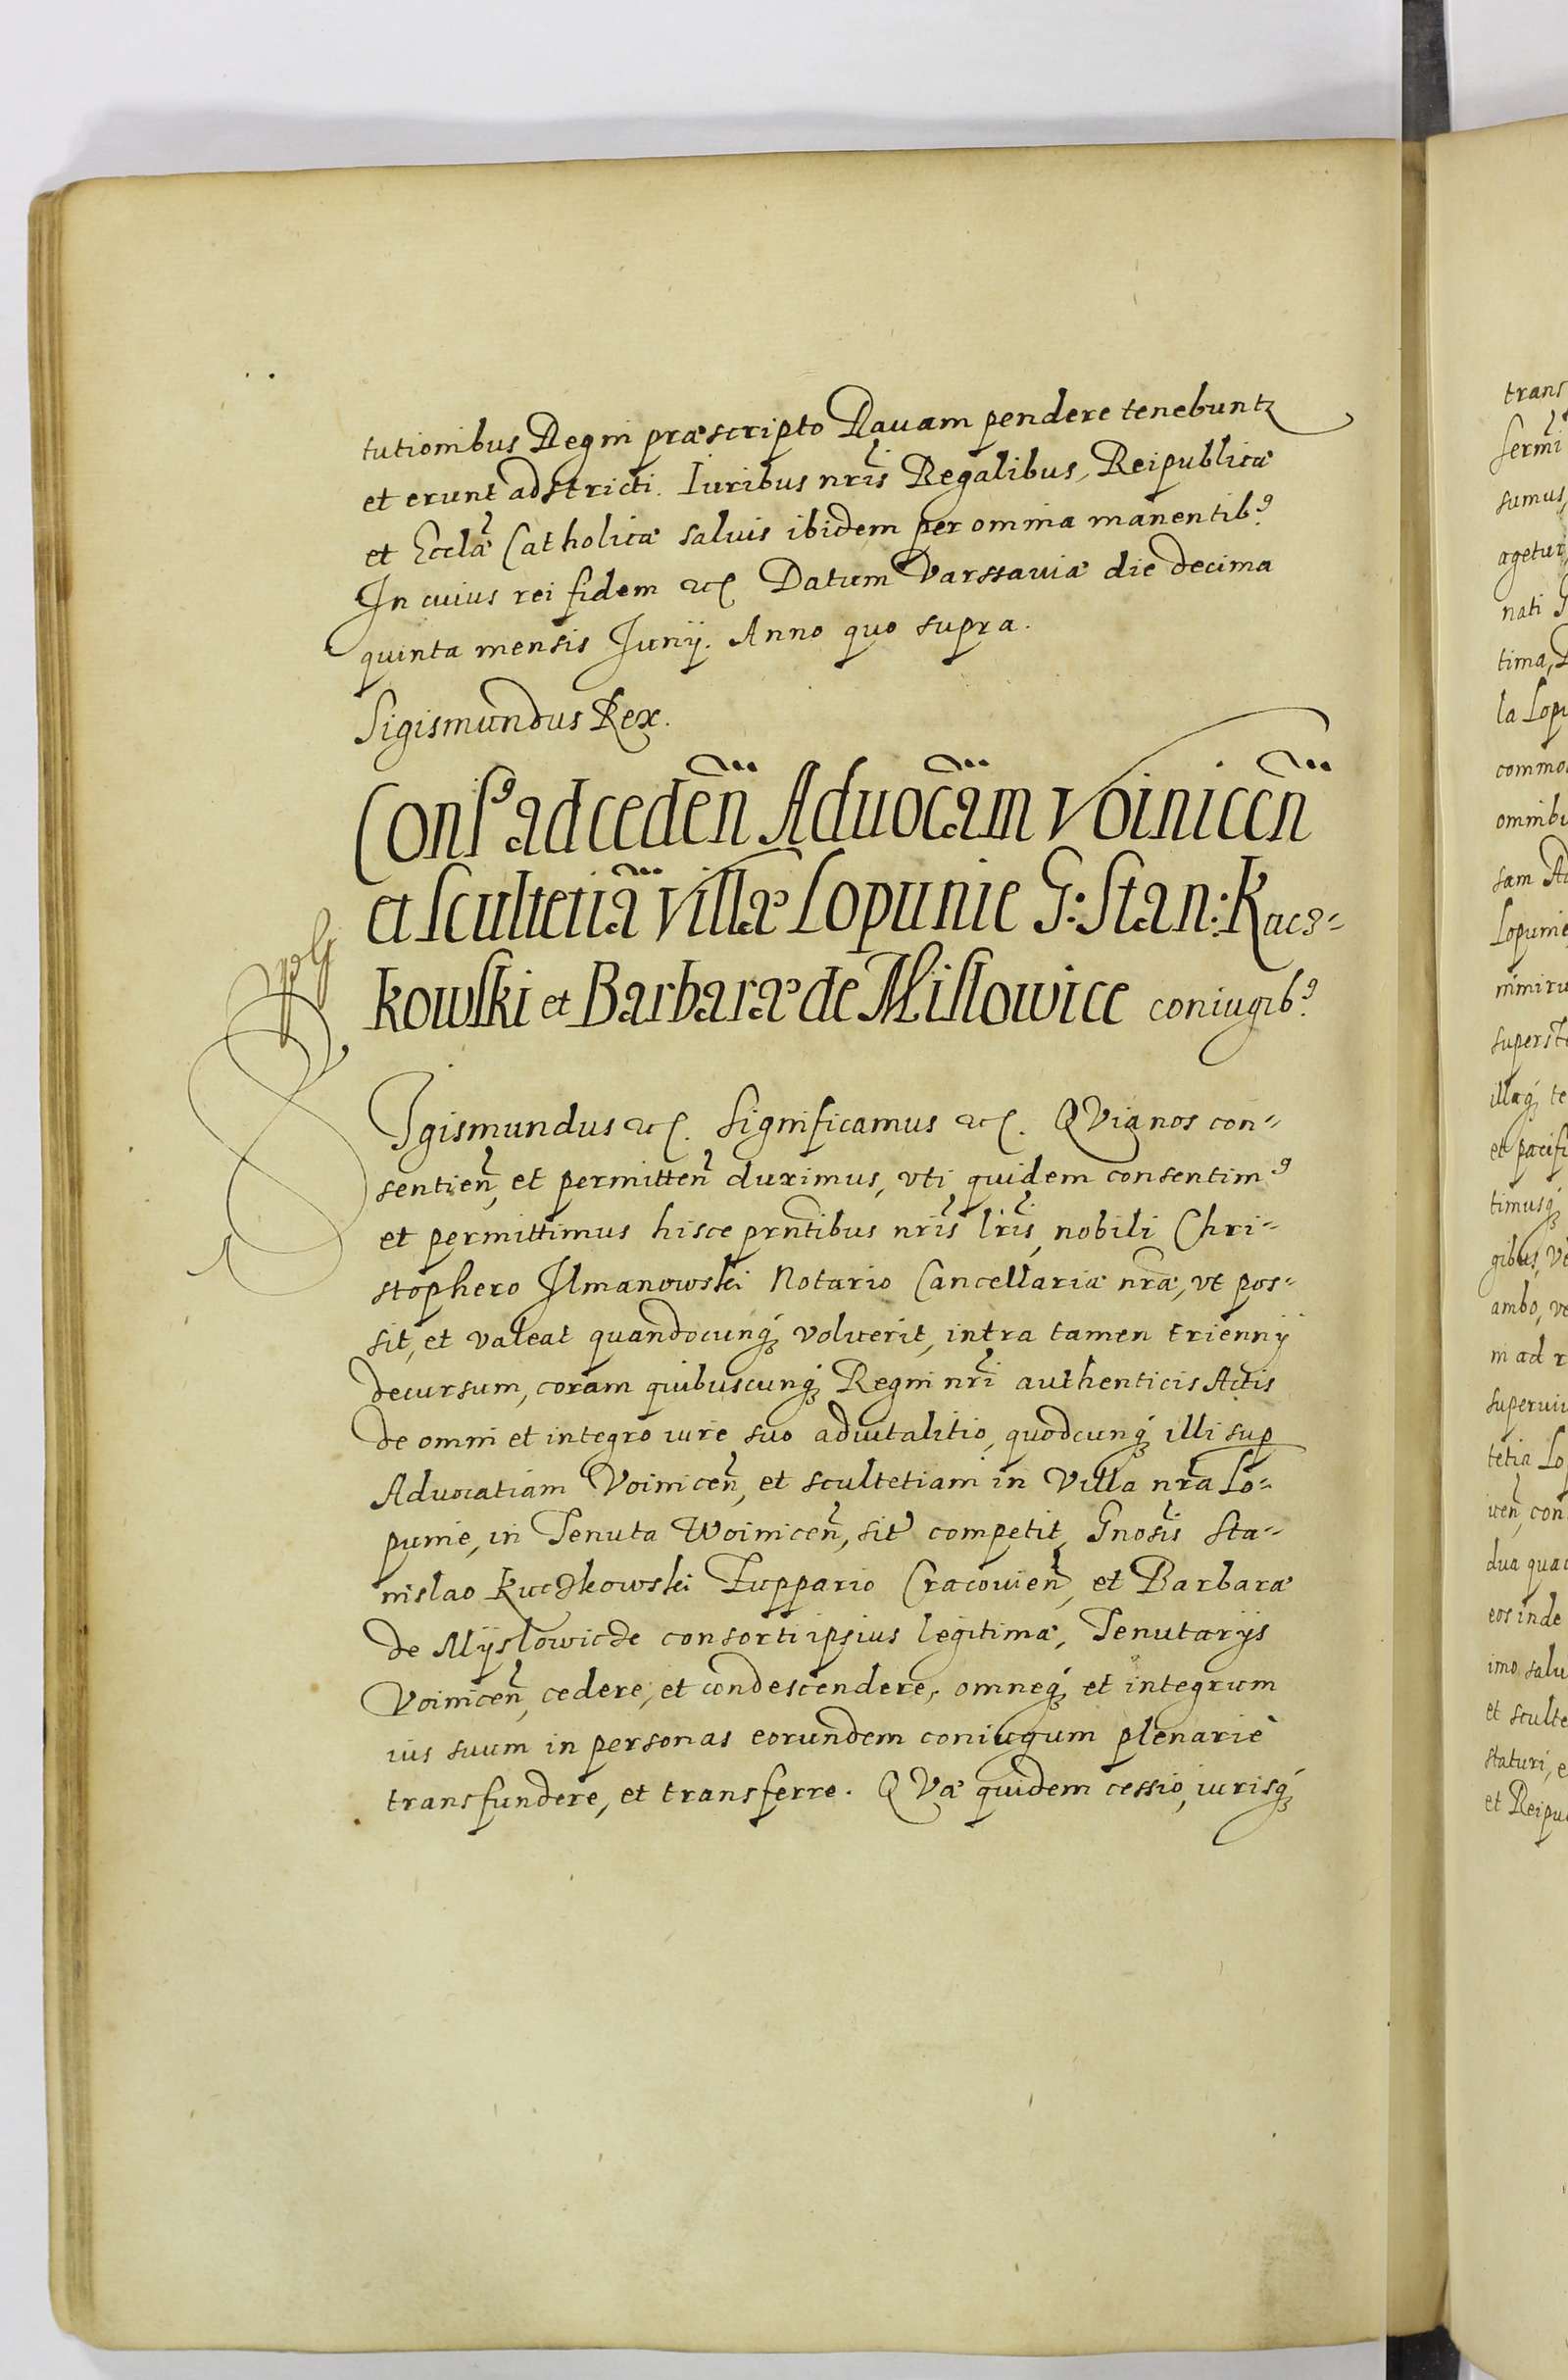 tutionibus Regni præscripto Rauam pendere tenebuntz
et erunt adstricti. Iuribus nris Regalibus, Reipublicæ
et Ecclæ Catholicæ saluis ibidem per omnia manentib9
In cuius rei fidem etc Datum Varssauiæ die decima
quinta mensis Junij. Anno quo supra.
Sigismundus Rex.
Cons9 ad ceden̄ Aduocām Voinicen̄
et Scultetiā Villæ Lopunie G: Stan: Kacz=
kowski et Barbaræ de Mislowice coniugib9
Igismundus etc. Significamus etc. QVia nos con=
sentien̄, et permitten̄ duximus, vti quidem consentim9
et permittimus hisce prntibus nris lris, nobili Chri=
stophero Ilmanowski Notario Cancellariæ nræ, vt pos=
sit, et valeat quandocunq́ꝫ voluerit, intra tamen triennij
decursum, coram quibuscunq́ꝫ Regni nri authenticis Actis
de omni et integro iure suo aduitalitio, quodcunq́ꝫ illi sup
Aduocatiam Voinicen̄, et scultetiam in Villa nra Lo=
punie, in Tenuta Woinicen̄, sit' competit, Gnosis Sta=
nislao Kuczkowski Zuppario Cracouien̄, et Barbaræ
de Mijslowicze consorti ipsius legitimæ, Tenutarijs
Voinicen̄, cedere, et condescendere, omneq́ꝫ et integrum
ius suum in personas eorundem coniugum plenariè
transfundere, et transferre. QVæ quidem cessio, iurisq́ꝫ
trans
sermi
sumus,
agetur,
nati G
tima,
la Lopu
commo
omnibu
sam Ad
Lopunie
nimiru
superst
illaq́ꝫ te
et pacifi
timusq́ꝫ
gibus, Ve
ambo, ve
m ad r
superui
tetia Lo
icen̄, con
dua qua
eos inde
imo salu
et sculte
staturi, e
et Reipu